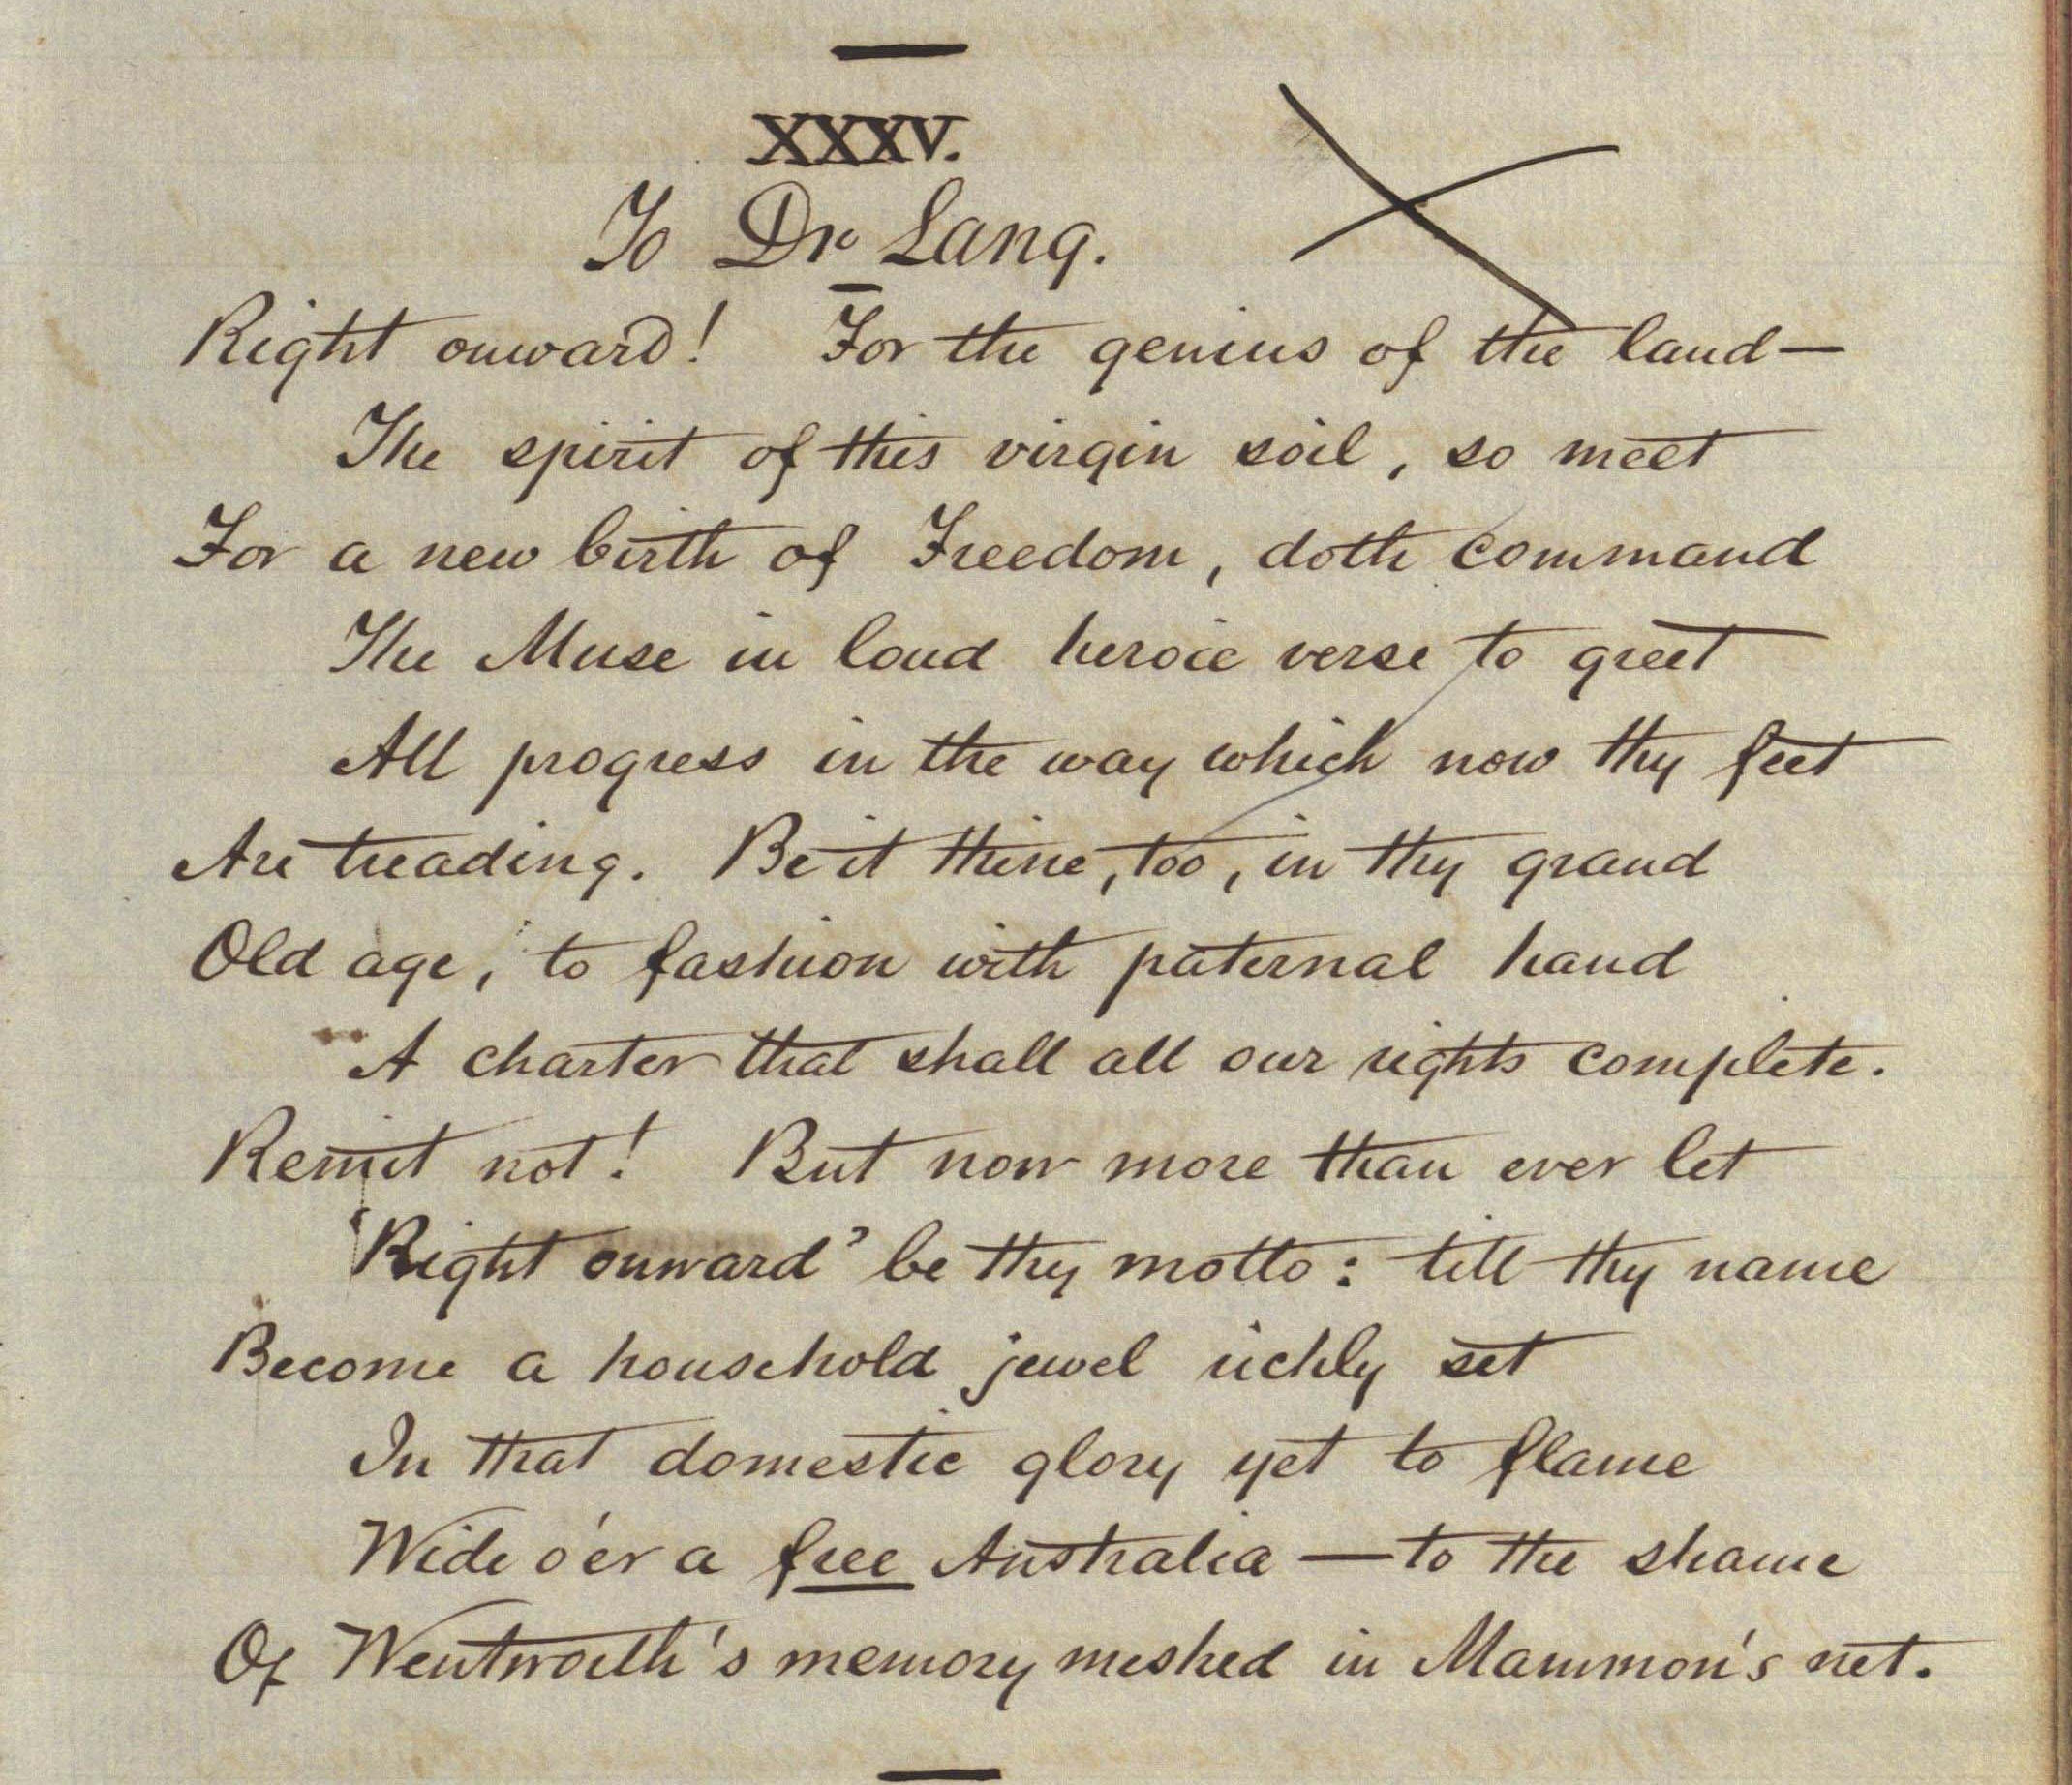 XXXV.
To Dr. Lang.
Right onward! For the genius of the land—
The spirit of this virgin soil, so meet
For a new birth of Freedom, doth command
The Muse in loud heroic verse to greet
All progress in the way which now thy feet
Are treading. Be it thine, too, in thy grand
Old age, to fashion with paternal hand
A charter that shall all our rights complete.
Remit not! But now more than ever let
'Right onward' be thy motto: till thy name
Become a household jewel richly set
In that domestic glory yet to flame
Wide o'er a free Australia — to the shame
Of Wentworth's memory meshed in Mammon's net.